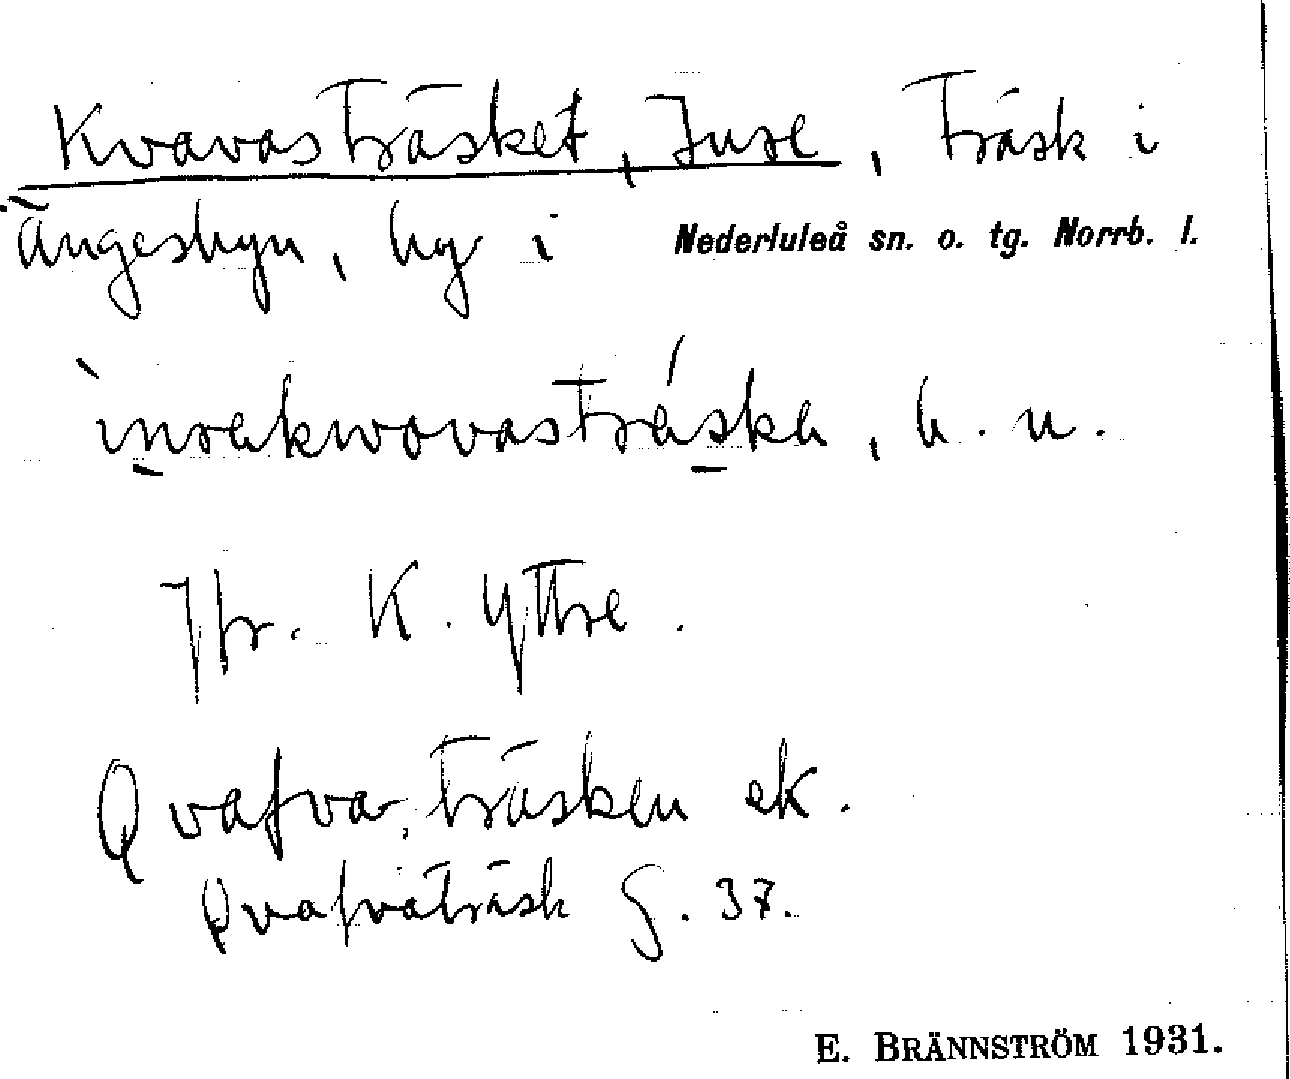 Kvavasträsket, Inre, träsk i
Ängesbyn, by i Nederluleå sn. o. tg. Norrb. l.
ìnrakwovastráska, b. n.
Jfr. K. Yttre.
Qvafva träsken ek.
Qvafvaträsk G. 37.
E. BRÄNNSTRÖM 1931.